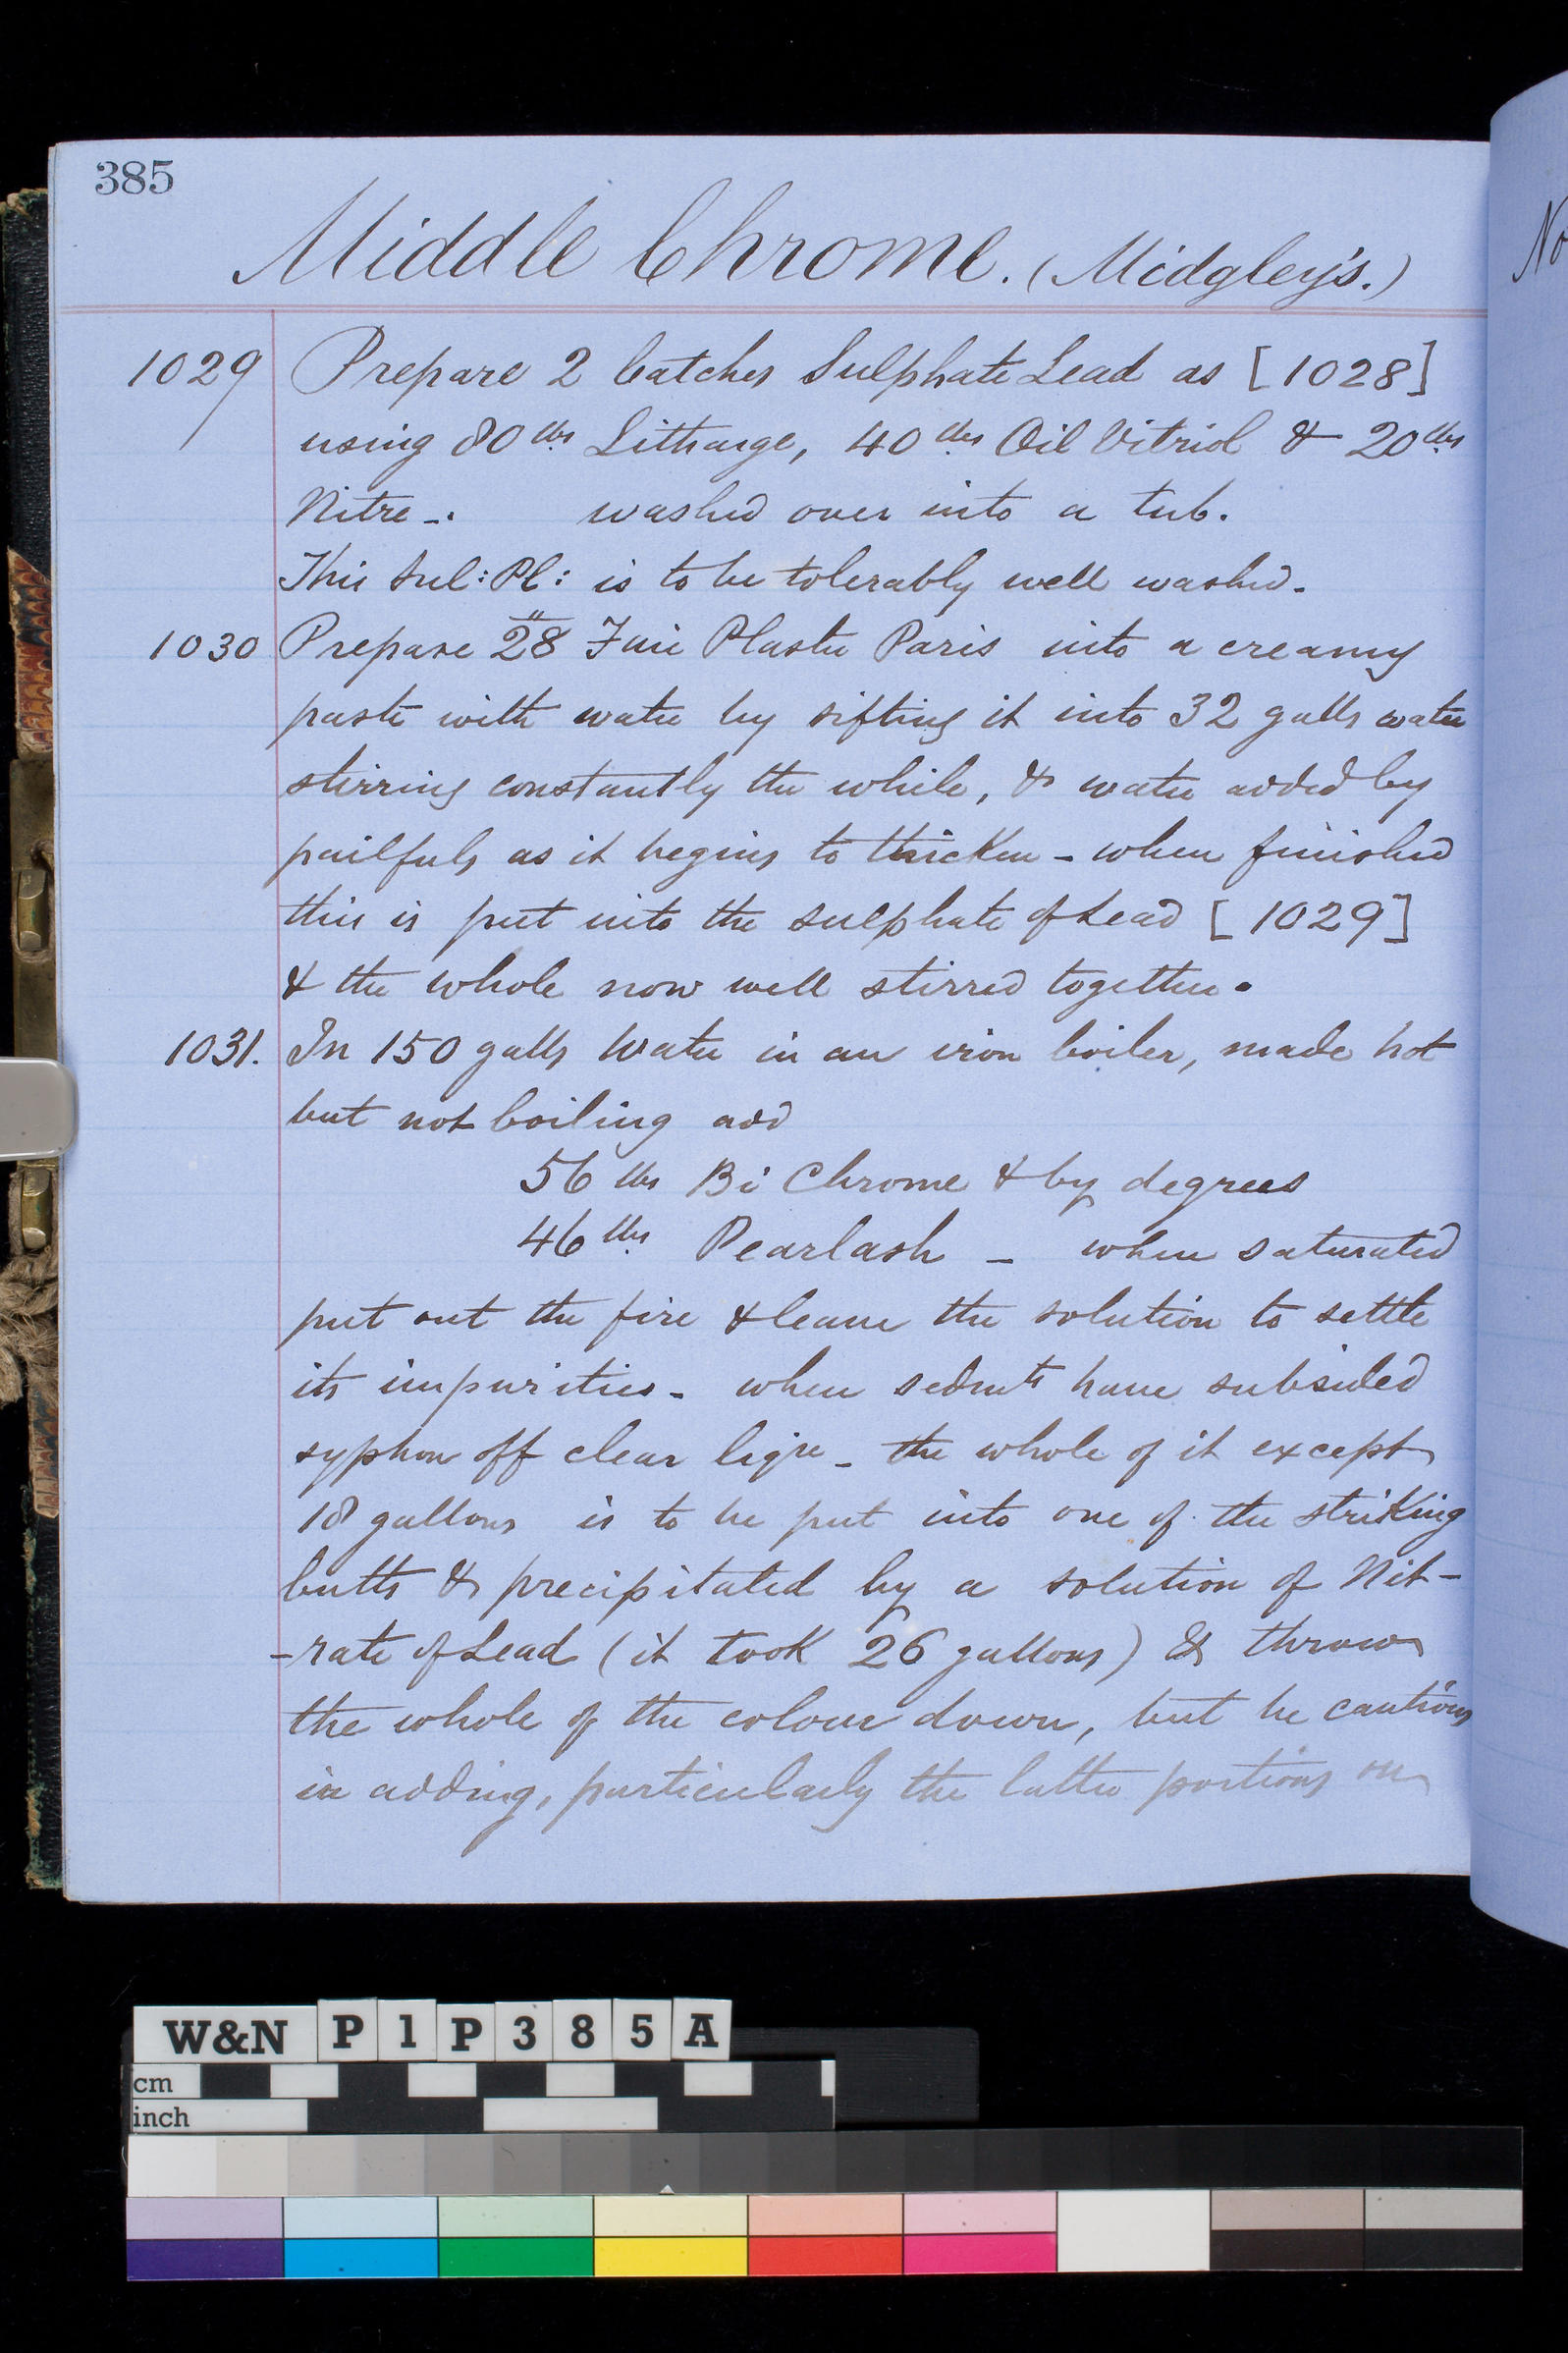 385
Middle Chrome. (Midgley's.)
1029 Prepare 2 batches Sulphate Lead as [1028]
using 80 lbs Litharge, 40 lbs Oil Vitriol & 20 lbs
Nitre -. washed over into a tub.
This Sul: Pl: is to be tolerably well washed.
1030 Prepare 28" Fine Plaster Paris into a creamy
paste with water by sifting it into 32 galls water
stirring constantly the while, & water added by
pailfuls as it begins to thicken - when finished
this is put into the sulphate of Lead [1029]
& the whole now well stirred together.
1031. In 150 galls Water in an iron boiler, made hot
but not boiling add
56 lbs Bi Chrome & by degrees
46 lbs Pearlash - when saturated
put out the fire & leave the solution to settle
its impurities - when sedmts have subsided
syphon off clear liqre - the whole of it except
18 gallons is to be put into one of the striking
butts & precipitated by a solution of Nit-
-rate of Lead (it took 26 gallons) & throw
the whole of the colour down, but be cautious
in adding, particularly the latter portions
No
W&N P1P385A
cm
inch